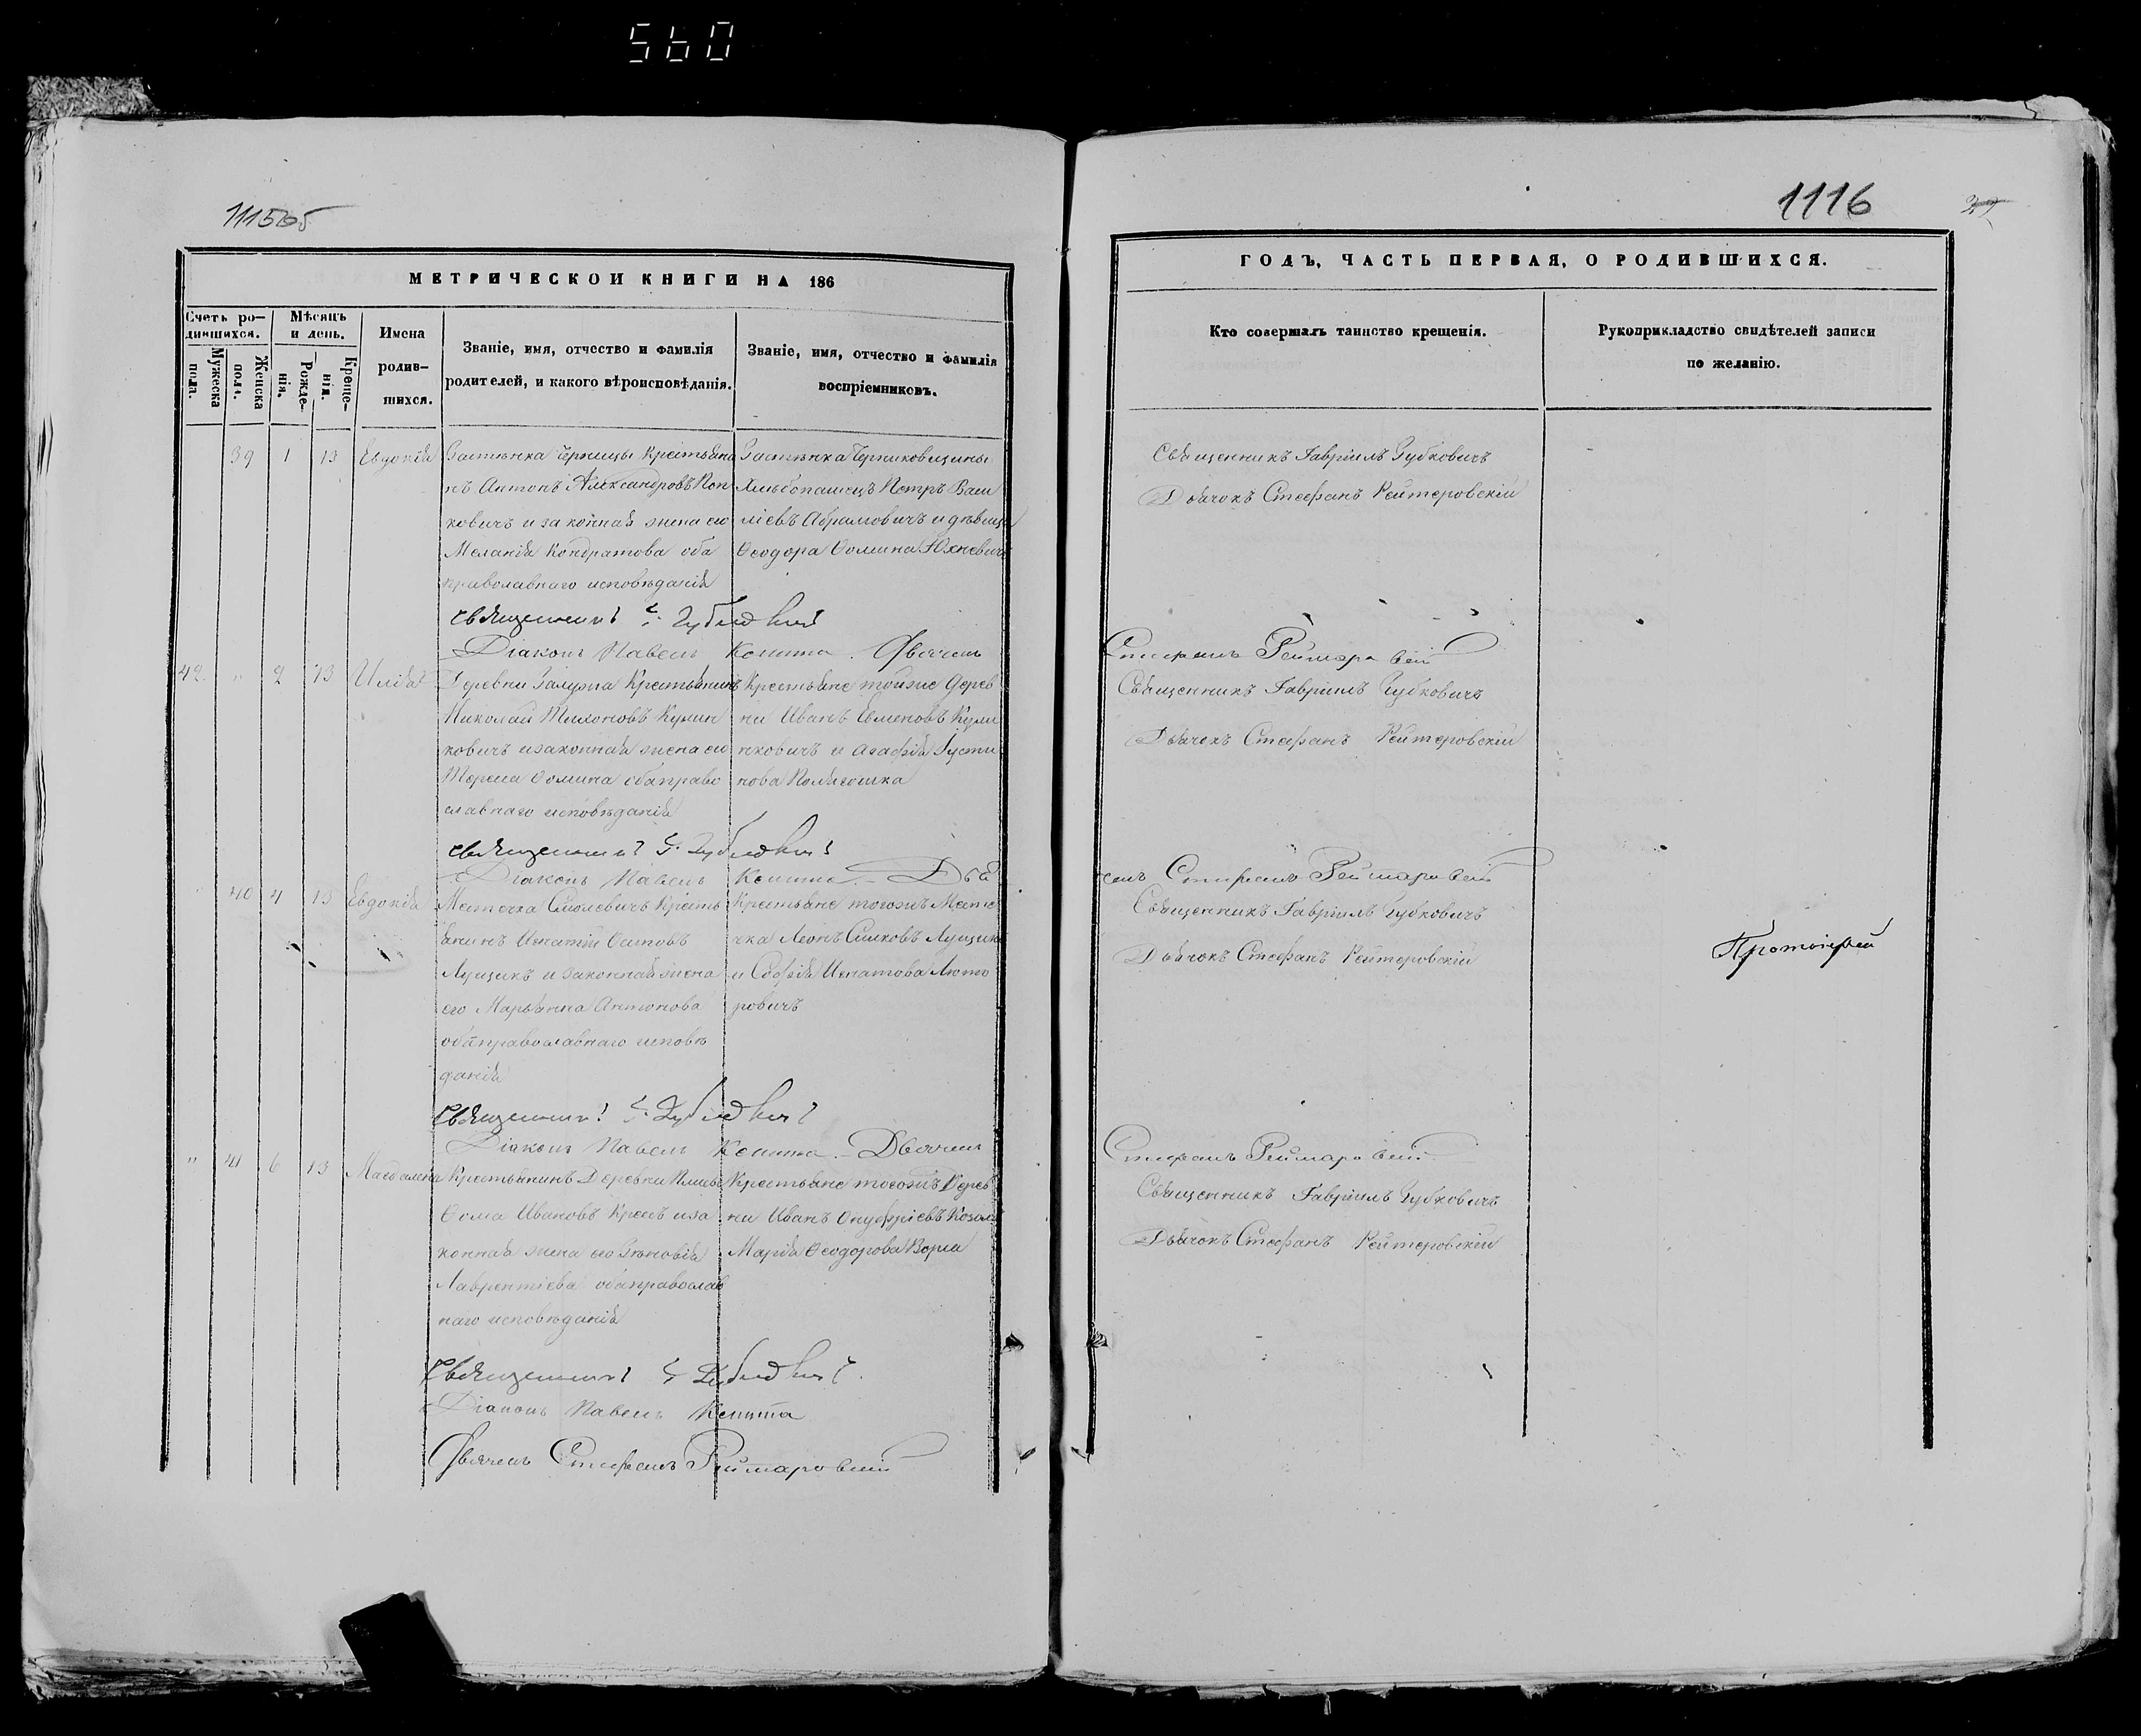 560
111505
МЕТРИЧЕСКОЙ КНИГИ НА 186
Счетъ ро-
дившихся.
Мужеска
пола.
Женска
пола.
Мѣсяцъ
и день.
Рожде-
нія.
Креще-
нія.
Имена
родив-
шихся.
Званіе, имя, отчество и фамилія
родителей, и какого вѣроисповѣданія.
Званіе, имя, отчество и фамилія
воспріемниковъ.
39 1 13 Евдокія
Застѣнка Черницы Крестьяни
нъ Антонъ Александровъ Поп
ковичъ и законная жена его
Меланія Кондратова оба
православнаго исповѣданія
Застѣнка Черниковщины
Хлѣбопашецъ Петръ Васи
ліевъ Абрамовичъ и дѣвица
Ѳеодора Ѳомина Юхневичъ
Священникъ Г.
Діаконъ Павелъ Кепита. Дьячекъ
42 " 2 13 Илія
Деревни Залужа Крестьянинъ
Николай Тихоновъ Кулин
ковичъ и законная жена его
Тереса Ѳомина оба право
славнаго исповѣданія
Крестьяне тойже Дерев
ни Иванъ Евменовъ Кули
нковичъ и Агафія Іусти
нова
Священникъ Г.
Діаконъ Павелъ Кепита. – Дья
40 4 13 Евдокія
Местечка Смолевичъ Кресть
янинъ Игнатій Осиповъ
Лущикъ и законная жена
его Марьянна Антонова
оба православнаго исповѣ
данія
Крестьяне тогожъ Месте
чка Леонъ Лущикъ
и Софія Игнатова Люто
ровичъ
Священникъ Г.
Діаконъ Павелъ Кепита. – Дьячекъ
" 41 6 13 Магдалина
Крестьянинъ Деревни Плисы
Ѳома Ивановъ Крень и за
конная жена его Зѣновія
Лаврентіева оба православ
наго исповѣданія
Крестьяне тогожъ Дерев
ни Иванъ Онуфріевъ Козелъ
Марія Ѳеодорова Ворса
Священникъ Г.
Діаконъ Павелъ Кепита
Дьячекъ Стефанъ Рейтаровскій
1116
27
ГОДЪ, ЧАСТЬ ПЕРВАЯ, О РОДИВШИХСЯ.
Кто совершалъ таинство крещенія.
Рукоприкладство свидѣтелей записи
по желанію.
Священникъ Гавріилъ Зубковичъ
Дьячокъ Стефанъ Рейтеровскій
Стефанъ Рейтаровскій
Священникъ Гавріилъ Зубковичъ
Дьячокъ Стефанъ Рейтеровскій
чекъ Стефанъ Рейтаровскій
Священникъ Гавріилъ Зубковичъ
Дьячокъ Стефанъ Рейтеровскій
Протоіерей
Стефанъ Рейтаровскій
Священникъ Гавріилъ Зубковичъ
Дьячокъ Стефанъ Рейтеровскій